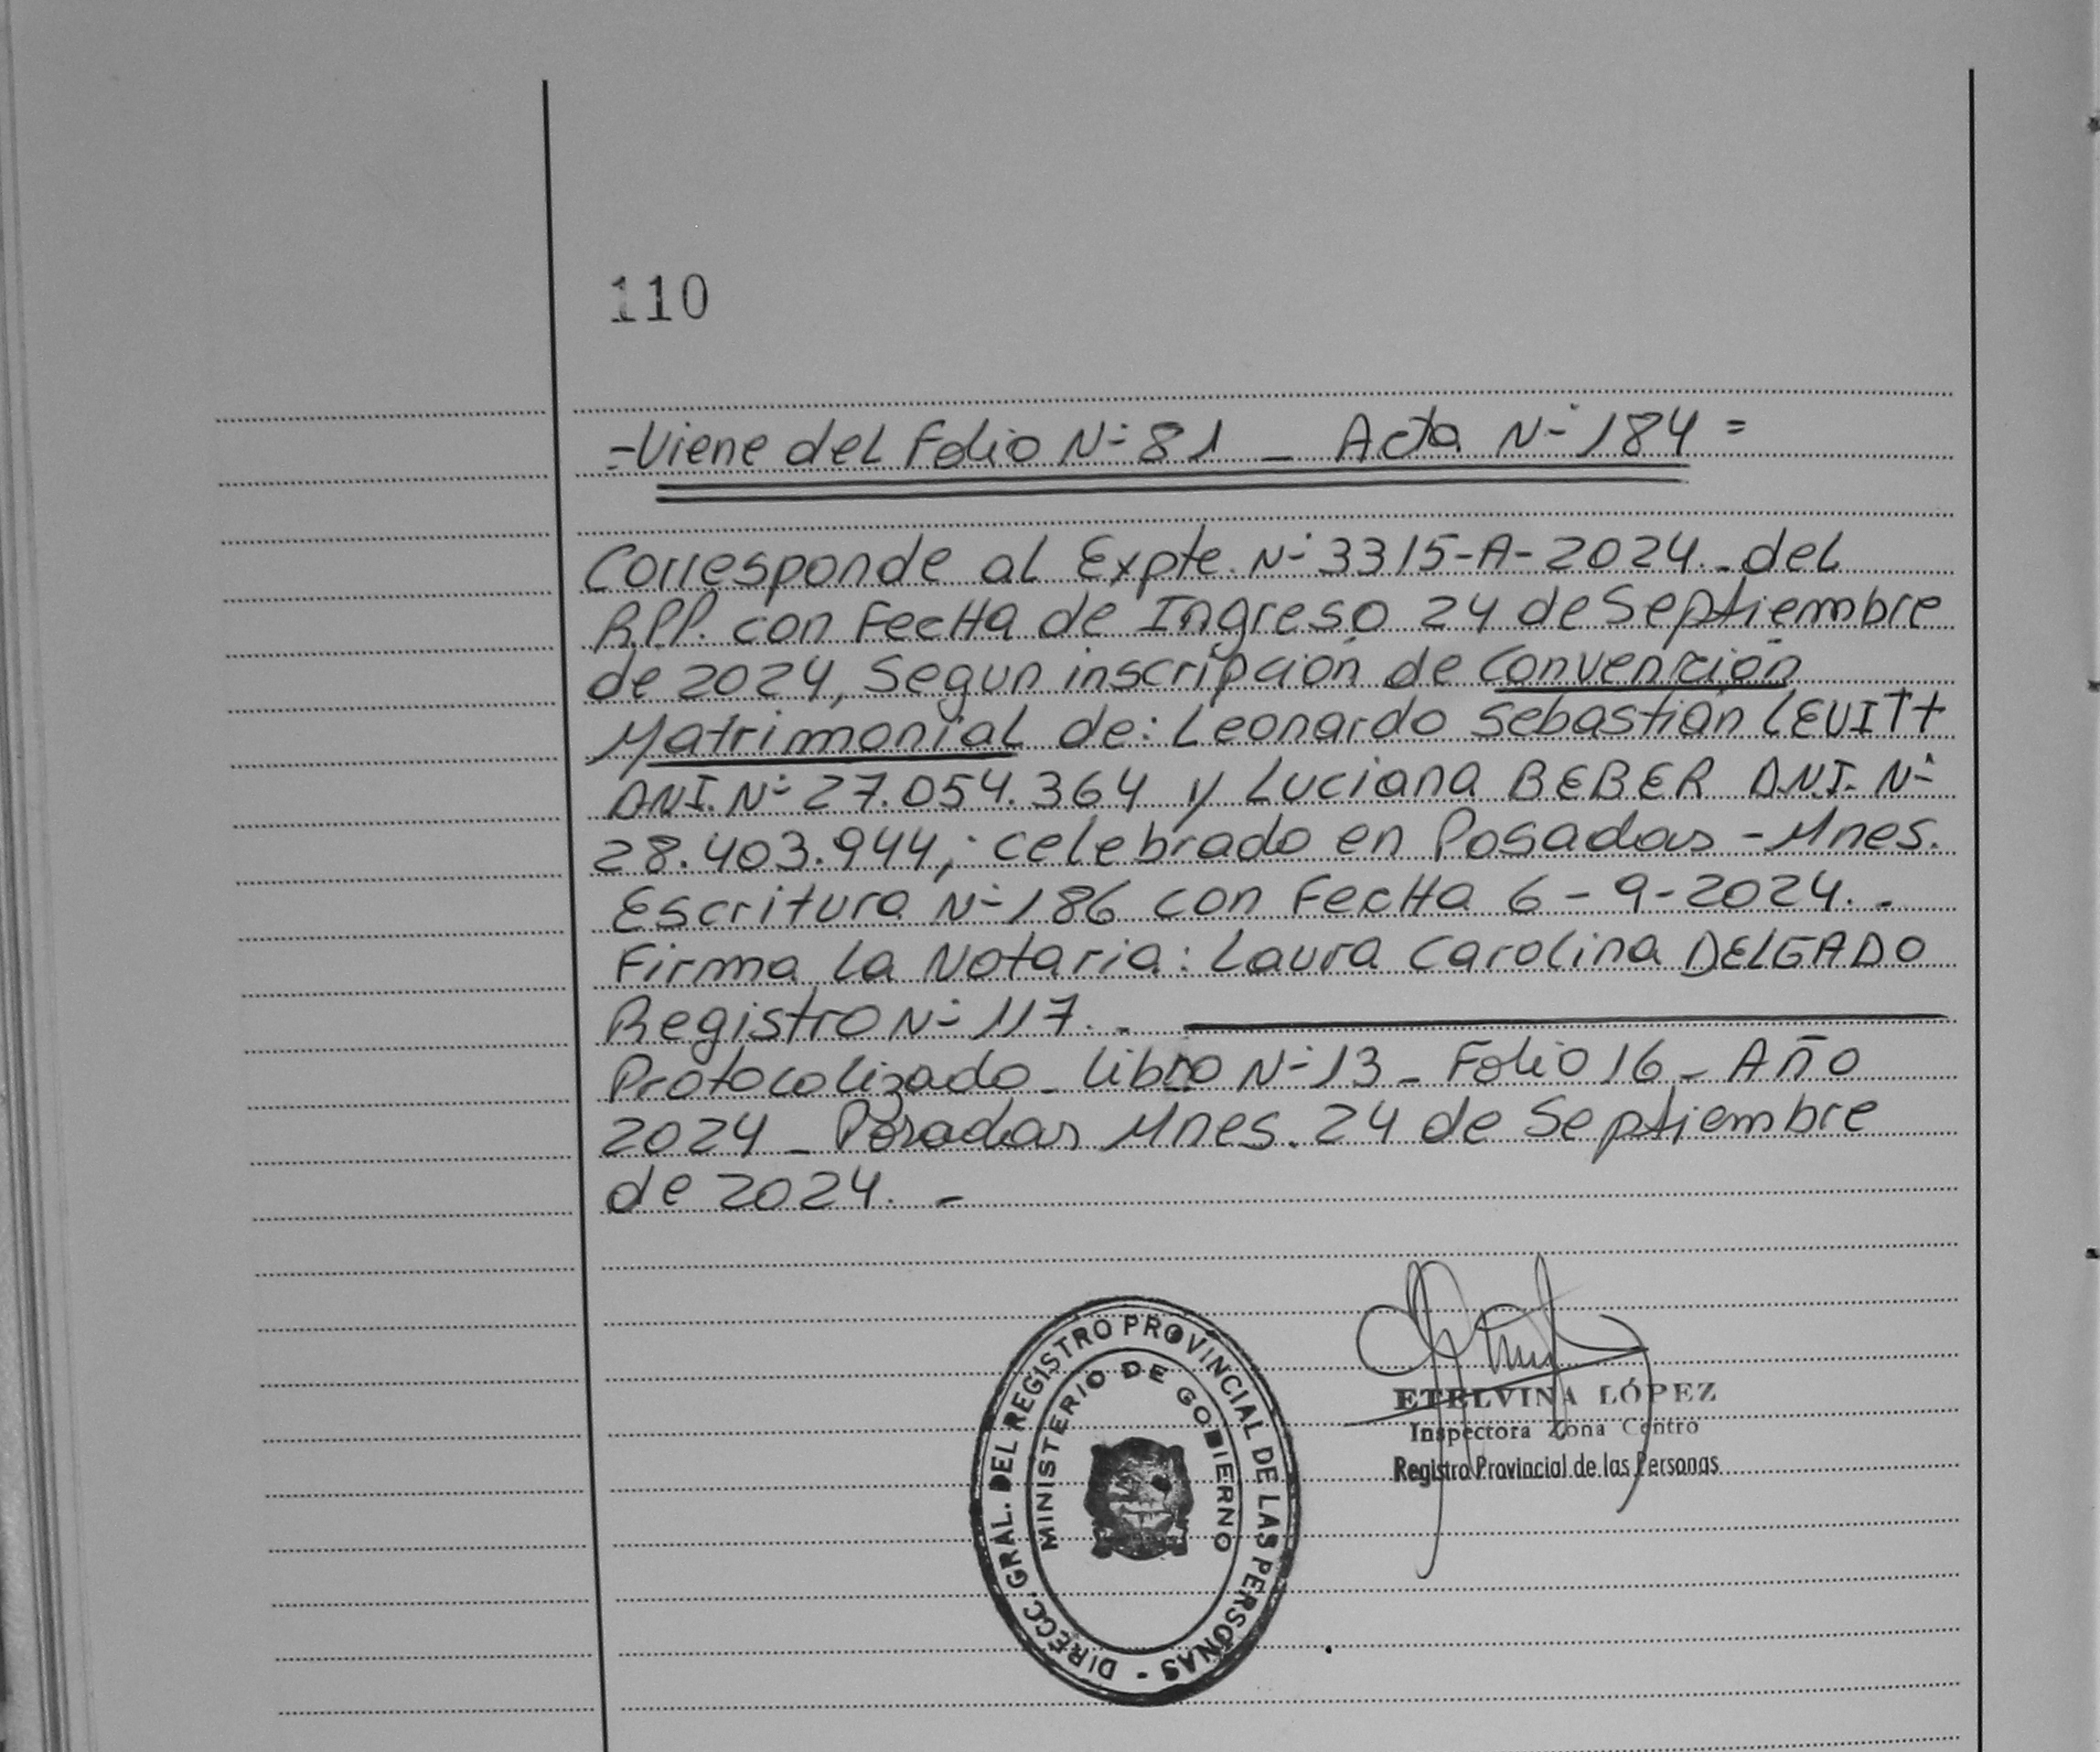 110
=Viene del Folio N° 81 _ Acta N° 184=
Corresponde al Expte. N° 3315-A-2024.-del
R.P.P. con FecHa de Ingreso 24 de Septiembre
de 2024, Segun inscripción de Convención
Matrimonial de: Leonardo Sebastián LEVITt
DNI. N° 27.054.364 y Luciana BEBER D.N.I. N°
28.403.944,; celebrado en Posadas - Mnes.
Escritura N° 186 con FecHa 6-9-2024. -
Firma la Notaria: Laura Carolina DELGADO
Registro N° 117. -
Protocolizado _ libro N° 13 _ Folio 16 _ AÑO
2024 _ Posadas Mnes. 24 de Septiembre
de 2024. -
DIRECC. GRAL. DEL REGISTRO PROVINCIAL DE LAS PERSONAS -
MINISTERIO DE GOBIERNO
ETELVINA LÓPEZ
Inspectora Zona Centro
Registro Provincial de las Personas